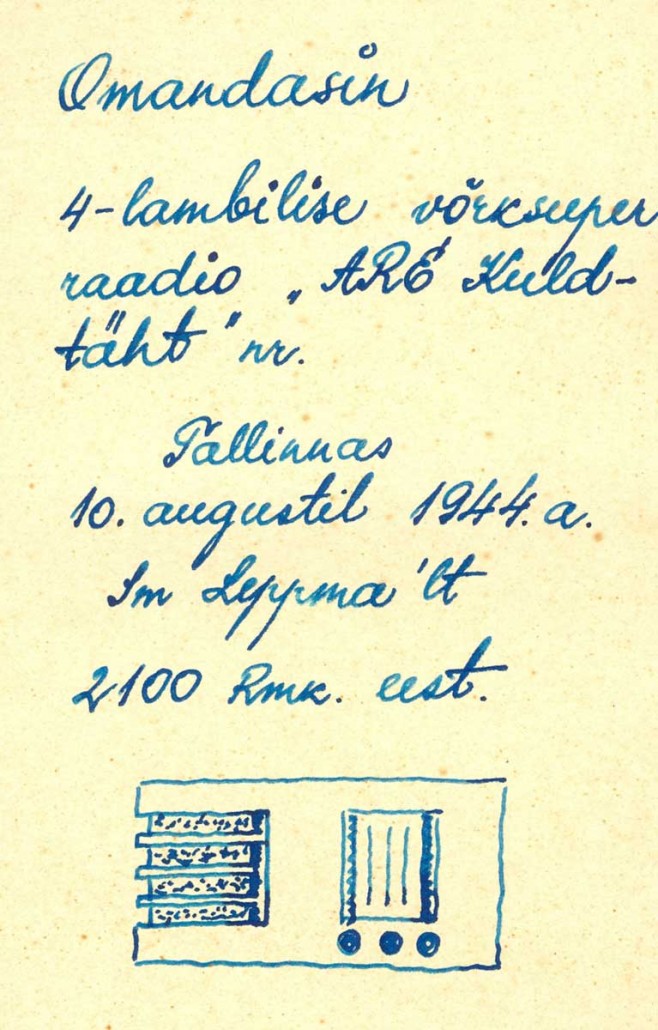 Omandasin
4-lambilise võrksuper
raadio „ARE Kuld-
täht" nr.
Tallinnas
10. augustil 1944. a.
Im Leppma'lt
2100 Rmk. eest.